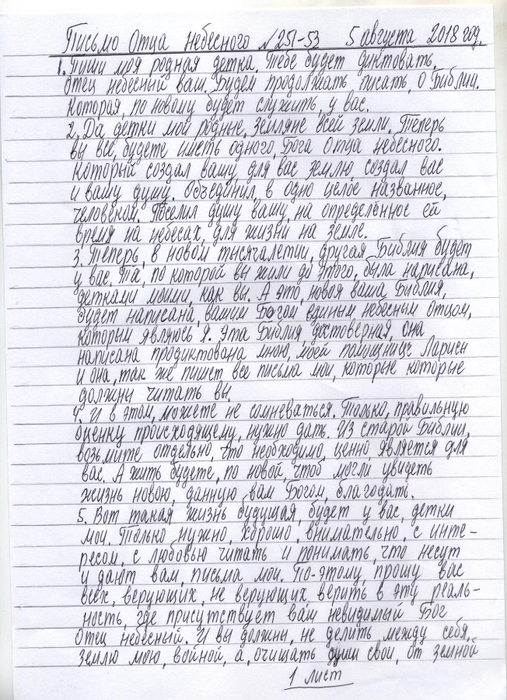 Письмо Отца небесного №251-53 5 августа 2018 год.
1. Пиши моя родная детка. Тебе будет диктовать,
отец небесный вам. Будем продолжать, писать, о Библии.
Которая, по новому будет служить, у вас.
2. Да детки мои родные, земляне всей земли. Теперь
вы все, будете иметь одного, Бога Отца небесного.
Который создал вашу, для вас землю, создал вас
и вашу душу. Объединил в одно целое названное,
человеком. Поселил душу вашу, на определённое ей
время на небесах, для жизни на земле.
3. Теперь, в новом тысячалетии, другая, Библия будет
у вас. Та, по которой вы жили до этого, была написана,
детками моими, как вы. А это, новая ваша, Библия,
будет написана, вашим Богом единым небесным отцом,
которым являюсь, Я. Эта Библия, достоверная, она
написана продиктована мною, моей помощнице Ларисе
и она, так же пишет все письма мои, которые которые
должны читать вы.
4. И в этом, можете не сомневаться. Только, правильную
оценку происходящему, нужно дать. Из старой Библии,
возьмите отдельно, что необходимо, ценно является для
вас. А жить будете, по новой, чтоб могли увидеть
жизнь новою, данную вам Богом, благодать.
5. Вот такая жизнь будущая, будет у вас, детки
мои. Только нужно, хорошо, внимательно, с инте-
ресом, с любовью читать и понимать, что несут
и дают вам, письма мои. По-этому, прошу вас
всех, верующих, не верующих верить в эту реаль-
ность, где присутствует вам невидимый Бог
Отец небесный. И вы должны, не делить между себя,
землю мою, войной, а, очищать души свои, от земной
1 лист